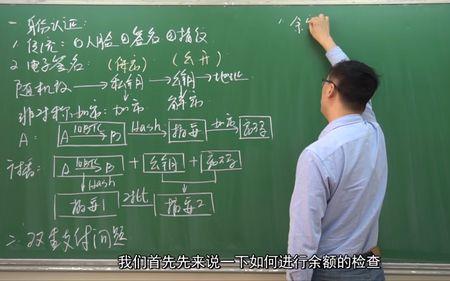 一.身份认证:
1.传统:①人脸②签名③指纹
2.电子签名:(保密)(公开)
随机数→私钥→公钥→地址
非对称加密:加密 解密
A: A 10BTC→B Hash→ 摘要 加密→ 密码
广播: A 10BTC→B + 公钥 + 密码
↓Hash ↓
摘要1 对比 摘要2
二.双重支付问题
1.余
我们首先先来说一下如何进行余额的检查